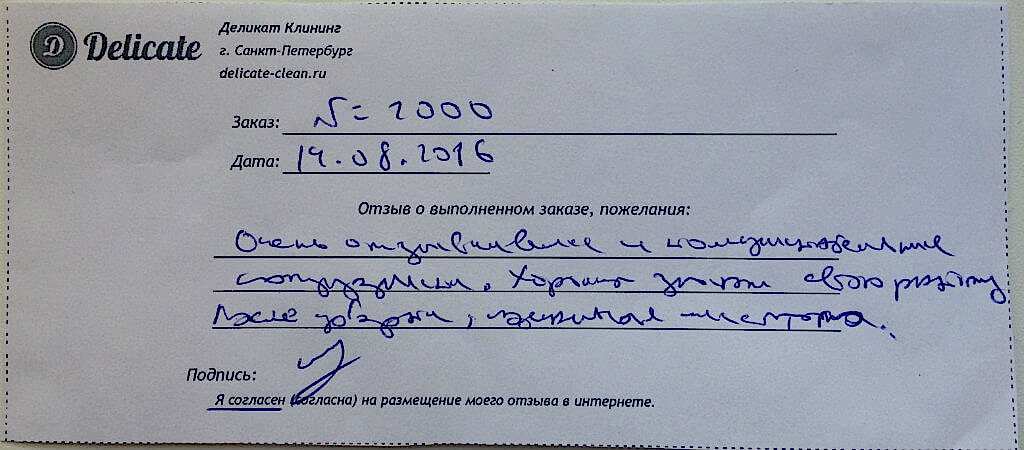 D Delicate
Деликат Клининг
г. Санкт-Петербург
delicate-clean.ru
Заказ: N= 2000
Дата: 14.08.2016
Отзыв о выполненном заказе, пожелания:
Очень отзывчивые и
сотрудники. Хорошо знают свою работу
После уборки, идеальная чистота.
Подпись:
Я согласен (согласна) на размещение моего отзыва в интернете.